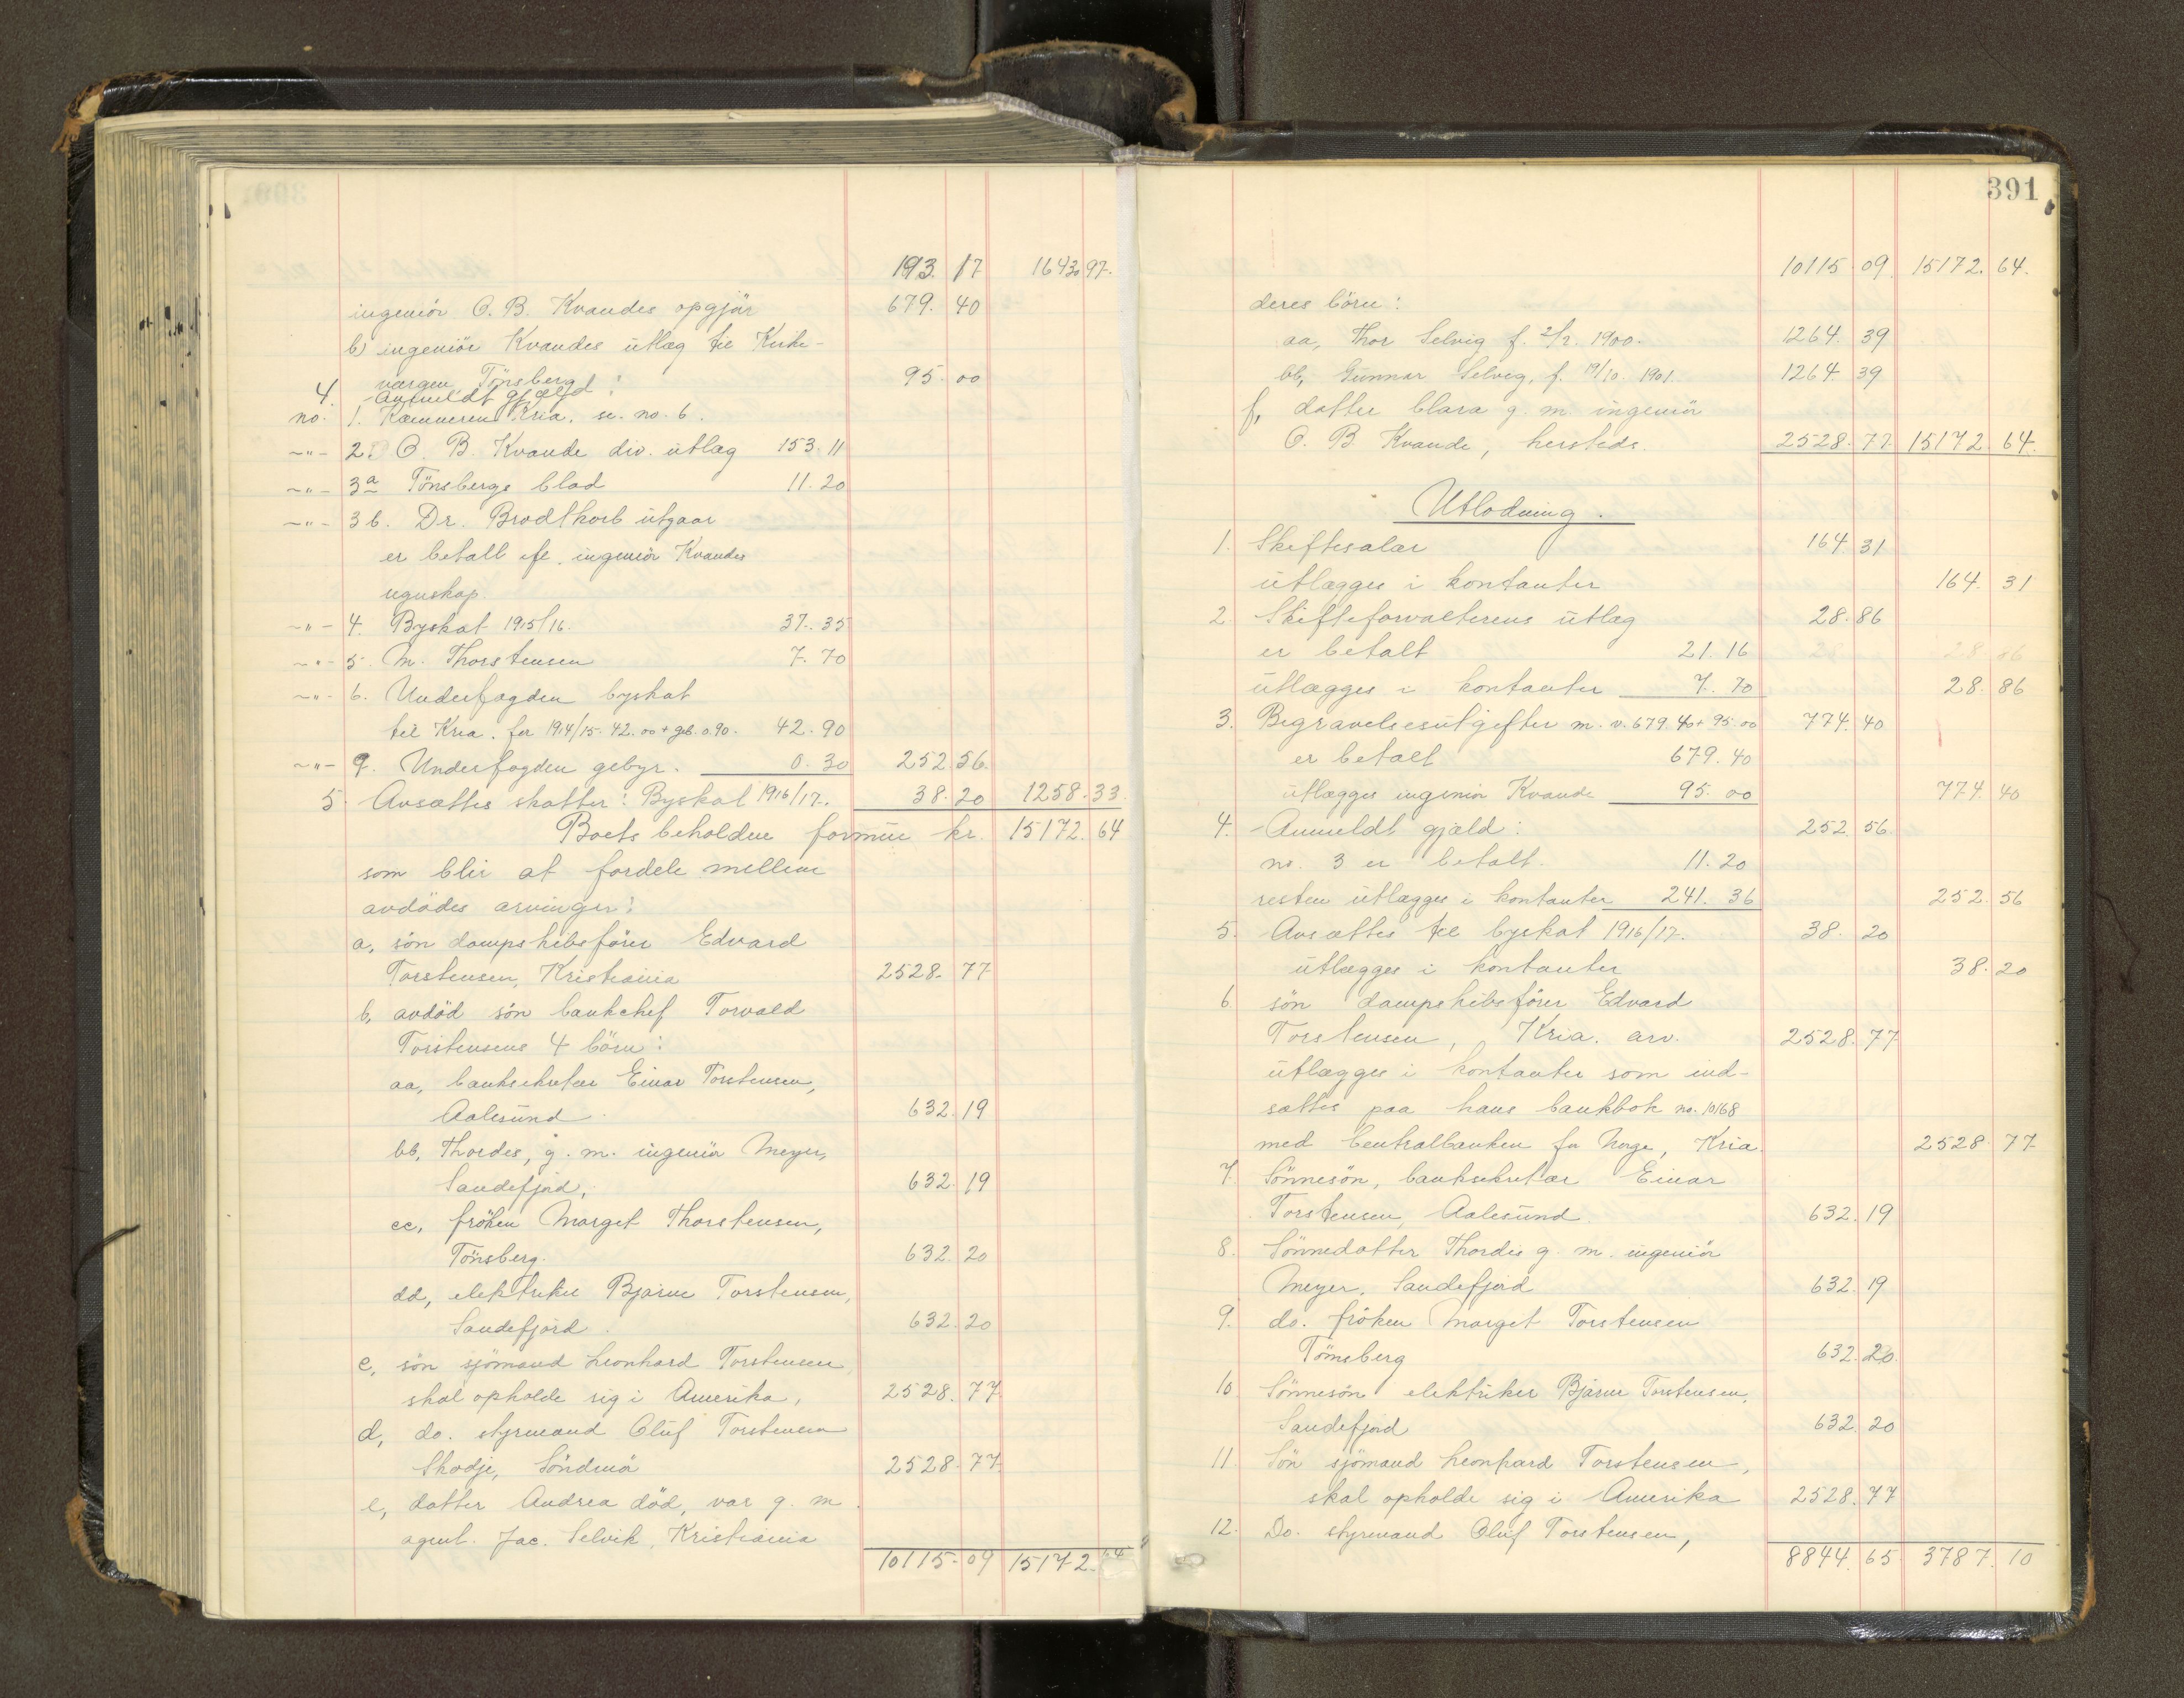 193. 17 16430 97.
ingeniör O. B. Kvandes opgjör 679. 40
b) ingeniör Kvandes utlæg til Kirke-
værgen Tönsberg 95. 00
4. Anmeldt gjæld:
no. 1. Kæmneren Kria. se. no. 6.
-"- 2. O. B. Kvande div. utlæg 153. 11
-"- 3a Tönsbergs blad 11. 20
-"- 3b. Dr. Brodtkorb utgaar
er betalt efr. ingeniör Kvandes
regnskap
-"- 4. Byskat 1915/16. 37. 35
-"- 5. M. Thorstensen 7. 70
-"- 6. Underfogden byskat
til Kria. for 1914/15. 42.00 + geb. 0.90. 42. 90
-"- 9. Underfogden gebyr. 0. 30 252. 56.
5. Avsættes skatter: Byskat 1916/17. 38. 20 1258. 33.
Boets beholdne formue kr. 15172. 64
som blir at fordele mellem
avdödes arvinger:
a, sön dampskibsförer Edvard
Torstensen, Kristiania 2528. 77
b, avdöd sön bankchef Torvald
Torstensens 4 börn:
aa, banksekretær Einar Torstensen,
Aalesund. 632. 19
bb, Thordes, g. m. ingeniör Meyer,
Sandefjord, 632. 19
cc, fröken Margit Thorstensen,
Tönsberg. 632. 20
dd, elektriker Bjarne Torstensen,
Sandefjord. 632. 20
c, sön sjömand Leonhard Torstensen
skal opholde sig i Amerika, 2528. 77.
d, do. styrmand Oluf Torstensen
Skodje, Söndmör 2528. 77.
e, datter Andrea död, var g. m.
agent. Jac. Selvik, Kristiania
10115. 09 15172. 64
391
10115. 09. 15172. 64.
deres börn:
aa, Thor Selvig f. 2/2. 1900. 1264. 39
bb, Gunnar Selvig, f. 19/10. 1901. 1264. 39
f, datter Clara g. m. ingeniör
O. B. Kvande, hersteds. 2528. 77. 15172. 64.
Utlodning.
1. Skiftesalær 164. 31
utlægges i kontanter 164. 31
2. Skifteforvalterens utlæg 28. 86
er betalt 21. 16
utlægges i kontanter 7. 70 28. 86
3. Begravelsesutgifter m. v. 679. 40 + 95. 00 774. 40
er betalt 679. 40
utlægges ingeniör Kvande 95. 00 774. 40
4. Anmeldt gjæld: 252. 56
no. 3 er betalt. 11. 20
resten utlægges i kontanter 241. 36 252. 56
5. Avsættes til byskat 1916/17. 38. 20
utlægges i kontanter 38. 20
6. sön dampskibsförer Edvard
Torstensen, Kria. arv. 2528. 77
utlægges i kontanter som ind-
sættes paa hans bankbok no. 10168
med Centralbanken for Norge, Kria. 2528. 77
7. Sönnesön, banksekretær Einar
Torstensen, Aalesund. 632. 19
8. Sönnedatter Thordis g. m. ingeniör
Meyer, Sandefjord 632. 19
9. do. fröken Margit Torstensen
Tönsberg 632. 20.
10 Sönnesön elektriker Bjarne Torstensen,
Sandefjord 632. 20
11. Sön sjömand Leonhard Torstensen,
skal opholde sig i Amerika 2528. 77
12. Do. styrmand Oluf Torstensen,
8844. 65 3787. 10